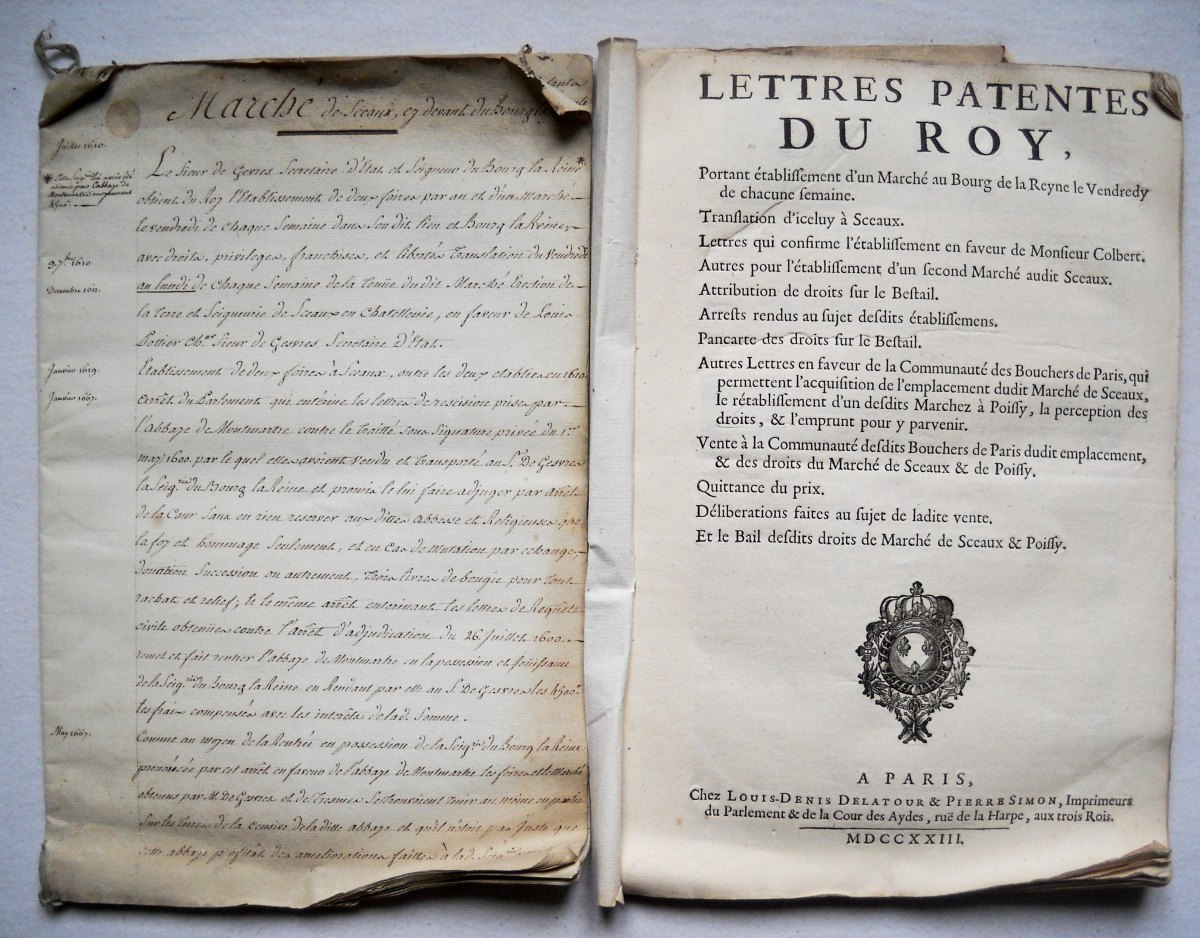 Marché de Sceaux, cy devant du Bourg
Juillet 1610.
Le Sieur de Gesvres Secretaire d'Etat et Seigneur du Bourg la Reine *
obtient du Roy l'Etablissement de deux foires par an et d'un Marché
le vendredi de chaque Semaine dans son dit lieu et Bourg la Reine,
avec droits, privileges, franchises, et libertés Translation du Vendredi
au lundi de chaque Semaine de la tenue du dit Marché Erection de
la terre et Seigneurie de Sceaux en Chatellenie, en faveur de Louis
Pottier Ch.er Sieur de Gesvres, Secretaire d'Etat.
Decembre 1611.
Janvier 1619.
Etablissement de deux foires à Sceaux, outre les deux etablies en 1610
Janvier 1667.
Arrêt du Parlement qui enterine les lettres de rescision prises par
l'abbaye de Montmartre contre le Traitté sous Signature privée du 1.er
may 1600. par le quel elles avoient Vendu et Transporté au S. De Gesvres
la Seig.rie du Bourg la Reine et promis le lui faire adjuger par Arrêt
de la Cour Sans en rien reserver aux dittes abbesse et Religieuses que
la foy et hommage Seulement, et en Cas de Mutation par echange,
donation Succession ou autrement, Trois livres de bougie pour tout
rachat et relief; et le même arrêt enterinant les lettres de Requête
civile obtenües contre l'arrêt d'adjudication du 26. Juillet 1600.
remet et fait rentrer l'abbaye de Montmartre en la possession et Joüissance
de la Seig.rie du Bourg la Reine en Rendant par elle au S. De Gesvres les 4500.
les frais compensés avec les interêts de lad. Somme.
May 1667.
Comme au moyen de la Rentrée en possession de la Seig.rie du Bourg la Reine
prononcée par cet arrêt en faveur de l'abbaye de Montmartre les foires et le Marché
obtenus par M. De Gesvres et de Tresmes Se trouvoient tenir au moins en partie
Sur les terres de la censive de la ditte abbaye et qu'il n'étoit pas Juste que
cette abbaye profitât des ameliorations faittes à lad. Seig.rie
LETTRES PATENTES
DU ROY,
Portant établissement d'un Marché au Bourg de la Reyne le Vendredy
de chacune semaine.
Translation d'iceluy à Sceaux.
Lettres qui confirme l'établissement en faveur de Monsieur Colbert.
Autres pour l'établissement d'un second Marché audit Sceaux.
Attribution de droits sur le Bestail.
Arrests rendus au sujet desdits établissemens.
Pancarte des droits sur le Bestail.
Autres Lettres en faveur de la Communauté des Bouchers de Paris, qui
permettent l'acquisition de l'emplacement dudit Marché de Sceaux,
le rétablissement d'un desdits Marchez à Poissy, la perception des
droits, & l'emprunt pour y parvenir.
Vente à la Communauté desdits Bouchers de Paris dudit emplacement,
& des droits du Marché de Sceaux & de Poissy.
Quittance du prix.
Déliberations faites au sujet de ladite vente.
Et le Bail desdits droits de Marché de Sceaux & Poissy.
A PARIS,
Chez LOUIS-DENIS DELATOUR & PIERRE SIMON, Imprimeurs
du Parlement & de la Cour des Aydes, ruë de la Harpe, aux trois Rois.
MDCCXXIII.